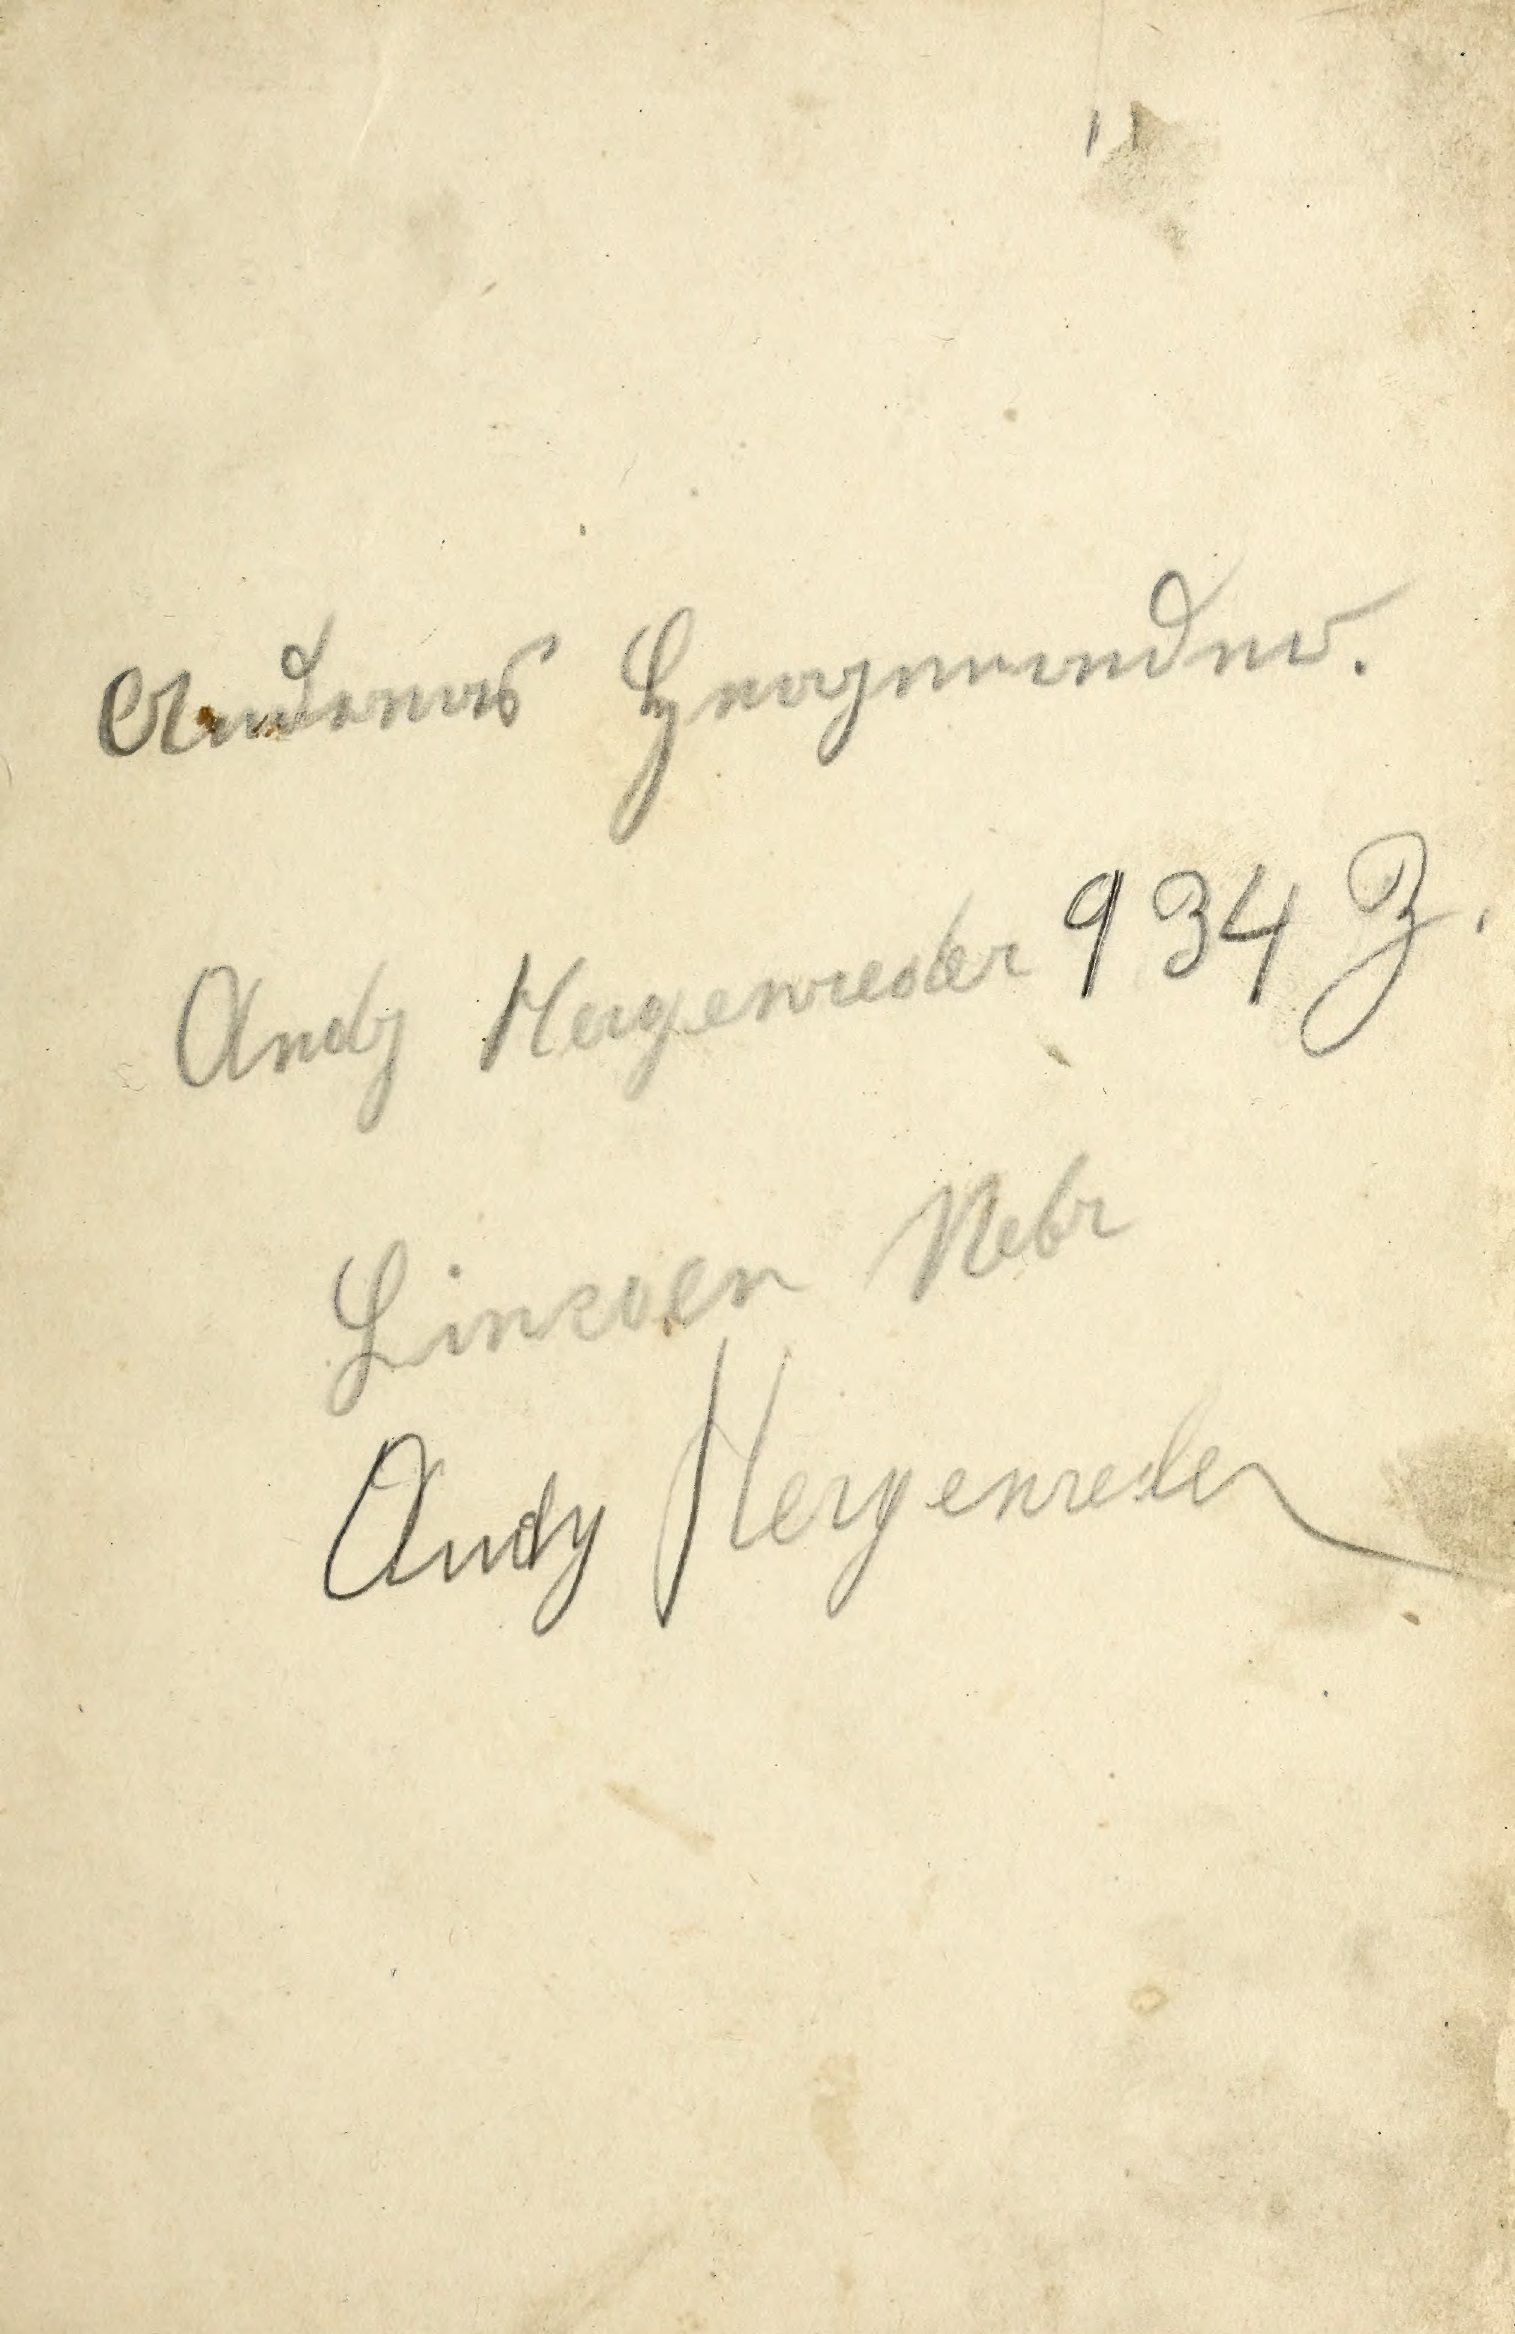 Andreas Hergenreder.
Andy Hergenreder 934 Z.
Lincoln Nebr
Andy Hergenreder